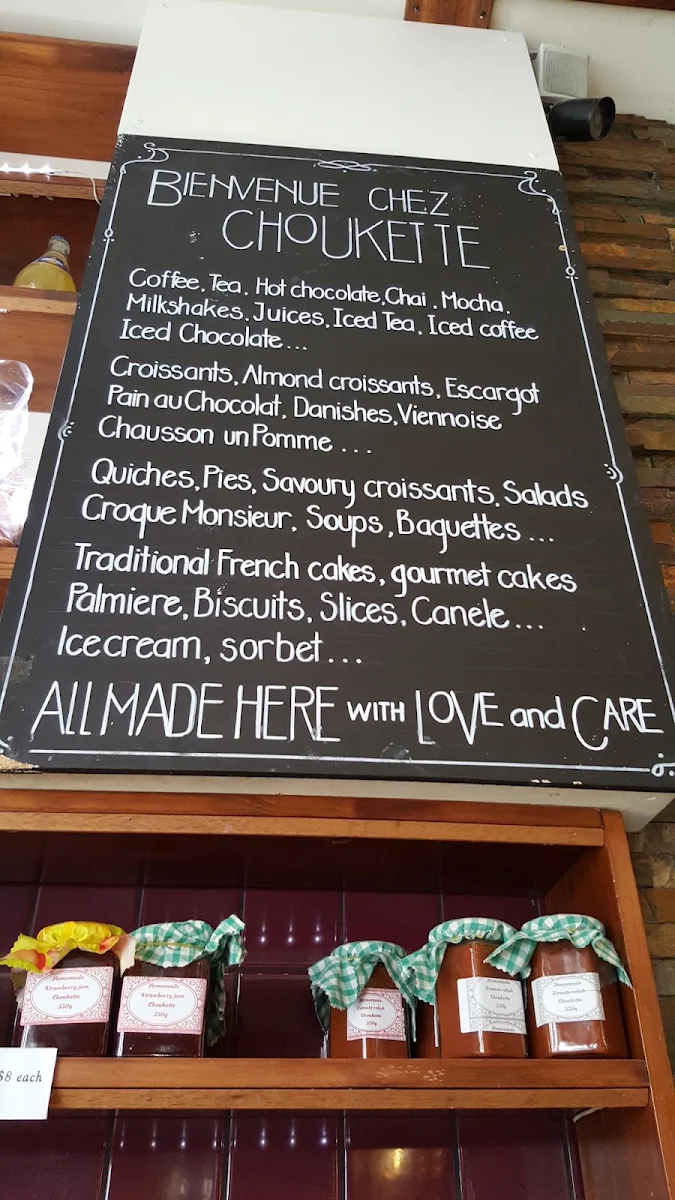 BIENVENUE CHEZ
CHOUKETTE
Coffee, Tea, Hot chocolate, Chai, Mocha,
Milkshakes, Juices, Iced Tea, Iced coffee
Iced Chocolate...
Croissants, Almond croissants, Escargot
Pain au Chocolat, Danishes, Viennoise
Chausson un Pomme ...
Quiches, Pies, Savoury croissants, Salads
Croque Monsieur, Soups, Baguettes ...
Traditional French cakes, gourmet cakes
Palmiere, Biscuits, Slices, Canele...
Icecream, sorbet...
All MADE HERE WITH LOVE and CARE
Homemade
Strawberry jam
Choukette
350g
Homemade
Strawberry jam
Choukette
350g
Homemade
Tomato relish
Choukette
350g
Tomato relish
Choukette
350g
Homemade
Homemade
Tomato relish
Choukette
350g
$8 each